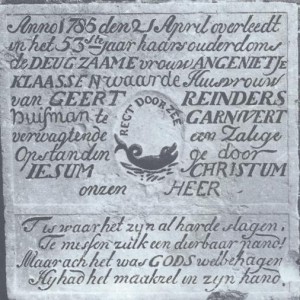 Anno 1785 den 21 April overleedt
in het 53ste jaar haars ouderdoms
de DEUGZAAME vrouw ANGENIETJE
KLAASSEN waarde Huisvrouw
van GEERT REINDERS
huisman te GARNWERT
verwagtende een Zalige
Opstandin ge door
IESUM CHRISTUM
onzen HEER
RECT DOOR ZEE
T is waar het zyn al harde slagen,
Te missen zulk een dierbaar pand!
Maar ach het was GODS welbehagen
Hy had het maakzel in zyn hand